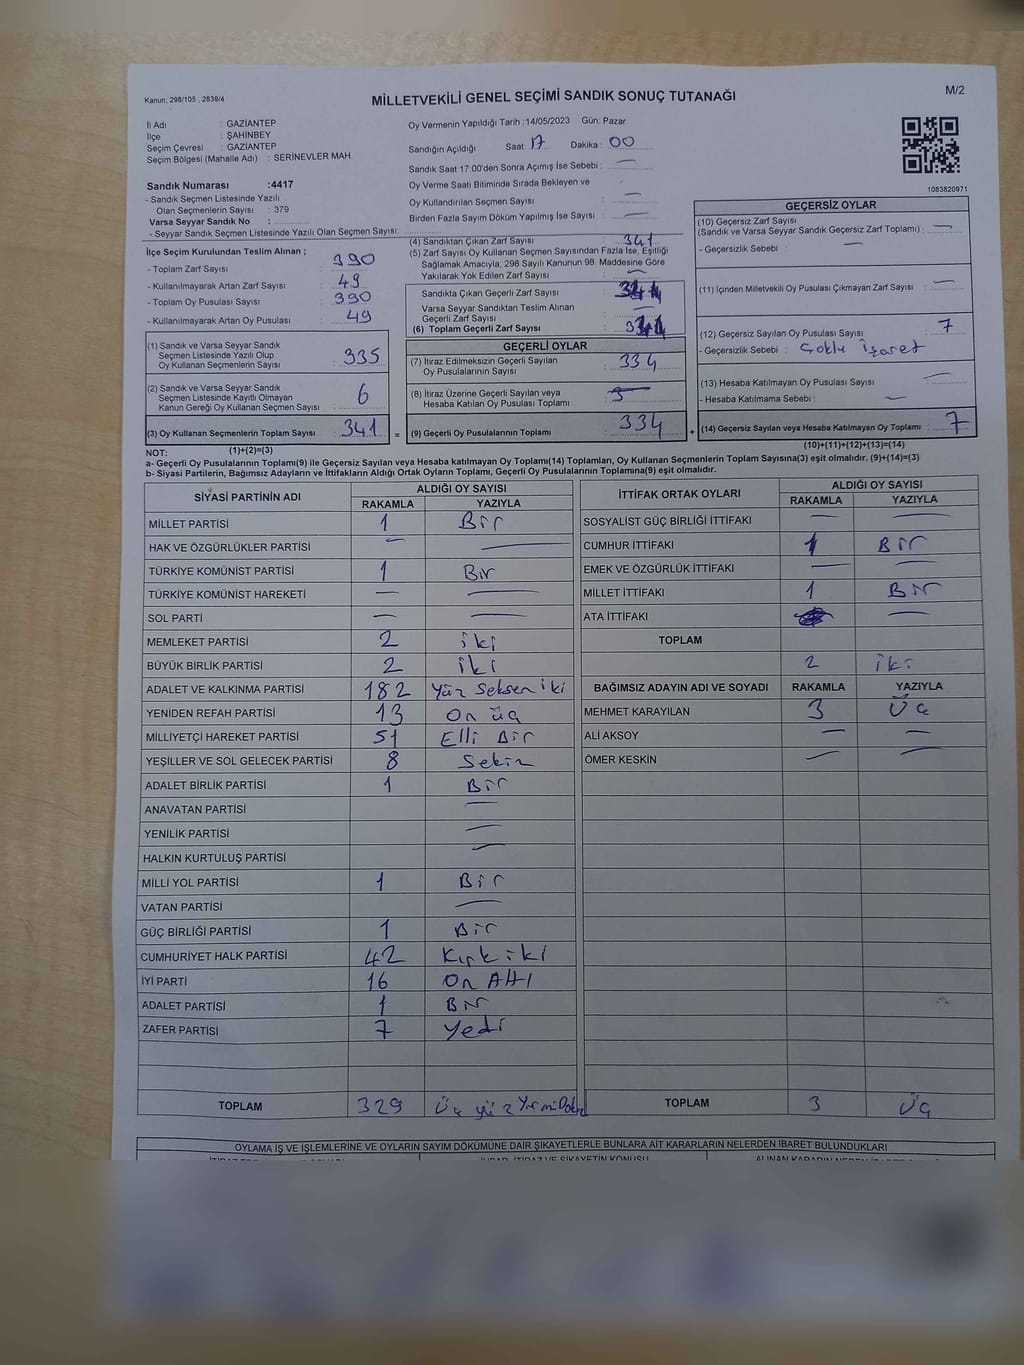 Kanun: 298/105 , 2839/4
MİLLETVEKİLİ GENEL SEÇİMİ SANDIK SONUÇ TUTANAĞI
M/2
İl Adı : GAZİANTEP
İlçe : ŞAHİNBEY
Seçim Çevresi : GAZİANTEP
Seçim Bölgesi (Mahalle Adı) : SERİNEVLER MAH.
Sandık Numarası :4417
- Sandık Seçmen Listesinde Yazılı
Olan Seçmenlerin Sayısı : 379
Varsa Seyyar Sandık No :
- Seyyar Sandık Seçmen Listesinde Yazılı Olan Seçmen Sayısı:
Oy Vermenin Yapıldığı Tarih :14/05/2023 Gün: Pazar
Sandığın Açıldığı Saat : 17 Dakika : 00
Sandık Saat 17:00'den Sonra Açımış İse Sebebi : —
Oy Verme Saati Bitiminde Sırada Bekleyen ve
Oy Kullandırılan Seçmen Sayısı : —
Birden Fazla Sayım Döküm Yapılmış İse Sayısı : —
1083820971
İlçe Seçim Kurulundan Teslim Alınan ;
- Toplam Zarf Sayısı : 390
- Kullanılmayarak Artan Zarf Sayısı : 49
- Toplam Oy Pusulası Sayısı : 390
- Kullanılmayarak Artan Oy Pusulası : 49
(1) Sandık ve Varsa Seyyar Sandık
Seçmen Listesinde Yazılı Olup
Oy Kullanan Seçmenlerin Sayısı : 335
(2) Sandık ve Varsa Seyyar Sandık
Seçmen Listesinde Kayıtlı Olmayan
Kanun Gereği Oy Kullanan Seçmen Sayısı : 6
(3) Oy Kullanan Seçmenlerin Toplam Sayısı : 341
(1)+(2)=(3)
(4) Sandıktan Çıkan Zarf Sayısı : 341
(5) Zarf Sayısı Oy Kullanan Seçmen Sayısından Fazla İse, Eşitliği
Sağlamak Amacıyla, 298 Sayılı Kanunun 98. Maddesine Göre
Yakılarak Yok Edilen Zarf Sayısı : —
Sandıkta Çıkan Geçerli Zarf Sayısı : 341
Varsa Seyyar Sandıktan Teslim Alınan
Geçerli Zarf Sayısı : —
(6) Toplam Geçerli Zarf Sayısı : 341
GEÇERLİ OYLAR
(7) İtiraz Edilmeksizin Geçerli Sayılan
Oy Pusulalarının Sayısı : 334
(8) İtiraz Üzerine Geçerli Sayılan veya
Hesaba Katılan Oy Pusulası Toplamı :
= (9) Geçerli Oy Pusulalarının Toplamı : 334 +
GEÇERSİZ OYLAR
(10) Geçersiz Zarf Sayısı
(Sandık ve Varsa Seyyar Sandık Geçersiz Zarf Toplamı) : —
- Geçersizlik Sebebi : —
(11) İçinden Milletvekili Oy Pusulası Çıkmayan Zarf Sayısı : —
(12) Geçersiz Sayılan Oy Pusulası Sayısı : 7
- Geçersizlik Sebebi : Çoklu İşaret
(13) Hesaba Katılmayan Oy Pusulası Sayısı : —
- Hesaba Katılmama Sebebi : —
(14) Geçersiz Sayılan veya Hesaba Katılmayan Oy Toplamı : 7
(10)+(11)+(12)+(13)=(14)
NOT:
a- Geçerli Oy Pusulalarının Toplamı(9) ile Geçersiz Sayılan veya Hesaba Katılmayan Oy Toplamı(14) Toplamları, Oy Kullanan Seçmenlerin Toplam Sayısına(3) eşit olmalıdır. (9)+(14)=(3)
b- Siyasi Partilerin, Bağımsız Adayların ve İttifakların Aldığı Ortak Oyların Toplamı, Geçerli Oy Pusulalarının Toplamına(9) eşit olmalıdır.
SİYASİ PARTİNİN ADI ALDIĞI OY SAYISI
RAKAMLA YAZIYLA
MİLLET PARTİSİ 1 Bir
HAK VE ÖZGÜRLÜKLER PARTİSİ — —
TÜRKİYE KOMÜNİST PARTİSİ 1 Bir
TÜRKİYE KOMÜNİST HAREKETİ — —
SOL PARTİ — —
MEMLEKET PARTİSİ 2 iki
BÜYÜK BİRLİK PARTİSİ 2 iki
ADALET VE KALKINMA PARTİSİ 182 Yüz Seksen iki
YENİDEN REFAH PARTİSİ 13 On üç
MİLLİYETÇİ HAREKET PARTİSİ 51 Elli Bir
YEŞİLLER VE SOL GELECEK PARTİSİ 8 Sekiz
ADALET BİRLİK PARTİSİ 1 Bir
ANAVATAN PARTİSİ —
YENİLİK PARTİSİ —
HALKIN KURTULUŞ PARTİSİ —
MİLLİ YOL PARTİSİ 1 Bir
VATAN PARTİSİ —
GÜÇ BİRLİĞİ PARTİSİ 1 Bir
CUMHURİYET HALK PARTİSİ 42 Kırk iki
İYİ PARTİ 16 On Altı
ADALET PARTİSİ 1 Bir
ZAFER PARTİSİ 7 Yedi
TOPLAM 329 Üç yüz Yirmi Dokuz
İTTİFAK ORTAK OYLARI ALDIĞI OY SAYISI
RAKAMLA YAZIYLA
SOSYALİST GÜÇ BİRLİĞİ İTTİFAKI — —
CUMHUR İTTİFAKI 1 Bir
EMEK VE ÖZGÜRLÜK İTTİFAKI — —
MİLLET İTTİFAKI 1 Bir
ATA İTTİFAKI —
TOPLAM
2 iki
BAĞIMSIZ ADAYIN ADI VE SOYADI RAKAMLA YAZIYLA
MEHMET KARAYILAN 3 Üç
ALİ AKSOY — —
ÖMER KESKİN — —
TOPLAM 3 Üç
OYLAMA İŞ VE İŞLEMLERİNE VE OYLARIN SAYIM DÖKÜMÜNE DAİR ŞİKAYETLERLE BUNLARA AİT KARARLARIN NELERDEN İBARET BULUNDUKLARI